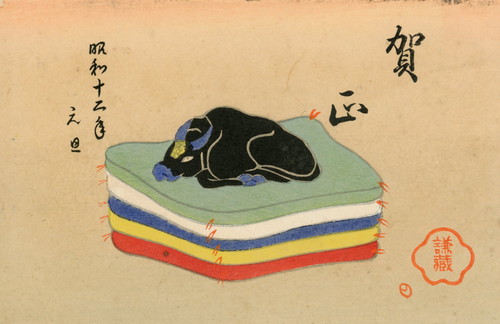 賀正
昭和十二年
元旦
謙藏